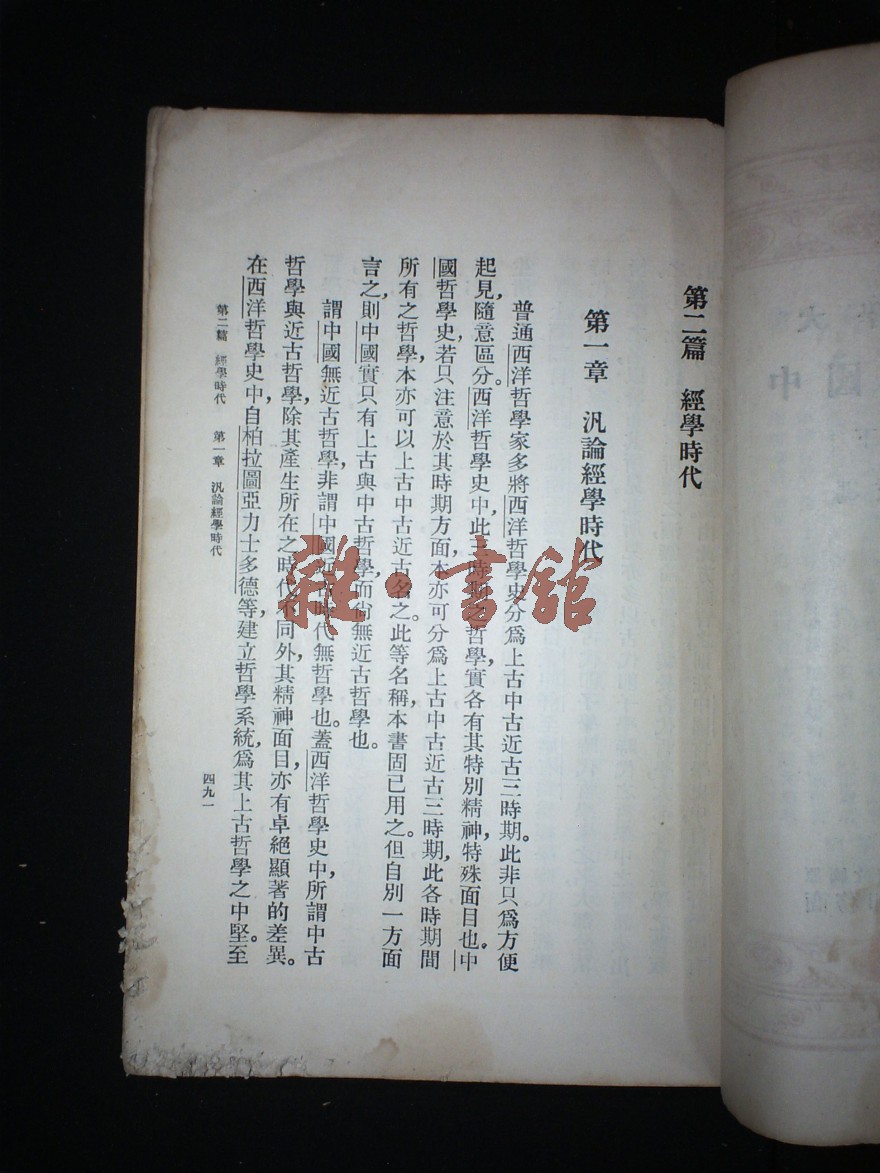 第二篇　經學時代
第一章　汎論經學時代
普通西洋哲學家多將西洋哲學史分爲上古中古近古三時期。此非只爲方便
起見，隨意區分。西洋哲學史中，此三時期之哲學，實各有其特別精神，特殊面目也。中
國哲學史，若只注意於其時期方面，本亦可分爲上古中古近古三時期，此各時期間
所有之哲學，本亦可以上古中古近古名之。此等名稱，本書固已用之。但自別一方面
言之，則中國實只有上古與中古哲學，而尚無近古哲學也。
謂中國無近古哲學，非謂中國近古時代無哲學也。蓋西洋哲學史中，所謂中古
哲學與近古哲學，除其產生所在之時代不同外，其精神面目，亦有卓絕顯著的差異。
在西洋哲學史中，自柏拉圖亞力士多德等，建立哲學系統，爲其上古哲學之中堅。至
第二篇　經學時代　第一章　汎論經學時代
四九一
雜·書舘
國中